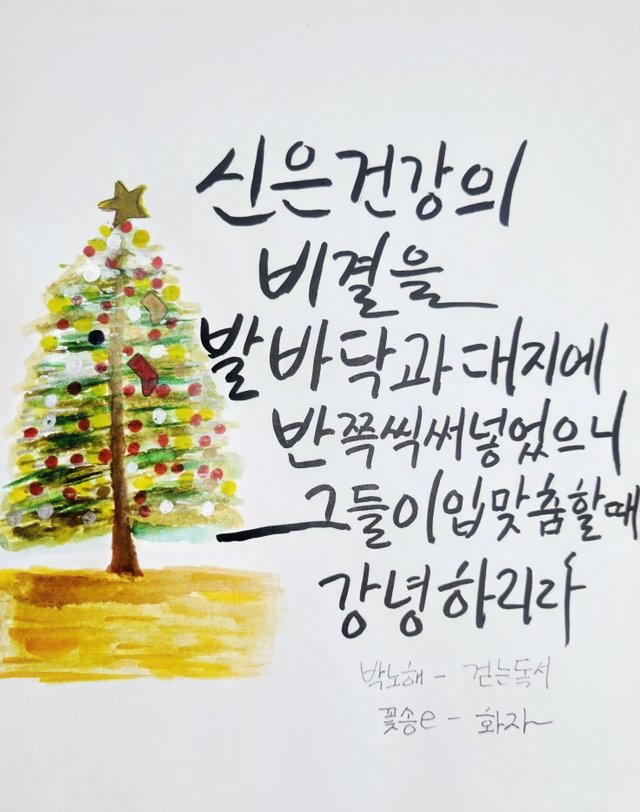 신은 건강의
비결을
발바닥과 대지에
반쪽씩 써 넣었으니
그들이 입맞춤할때
강녕하리라
박노해 - 걷는독서
꽃송e - 화자~